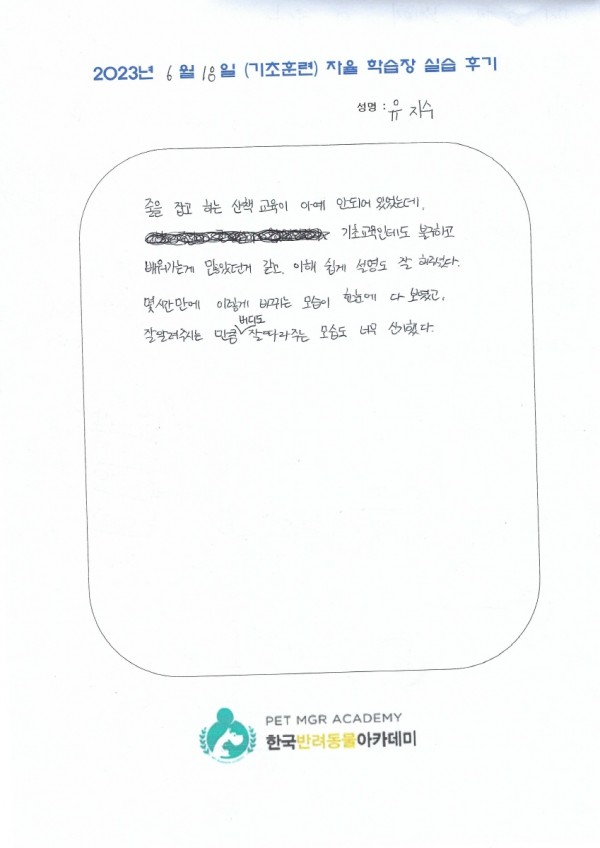 2023년 6월 18일 (기초훈련) 자율 학습장 실습 후기
성명 : 유지수
줄을 잡고 하는 산책 교육이 아예 안되어 있었는데,
기초교육인데도 불구하고
배워가는게 많았던거 같고, 이해 쉽게 설명도 잘 해주셨다.
몇시간만에 이렇게 바뀌는 모습이 한눈에 다 보였고,
버디도
잘알려주시는 만큼 잘 따라주는 모습도 너무 신기했다.
PET MGR ACADEMY
한국반려동물아카데미